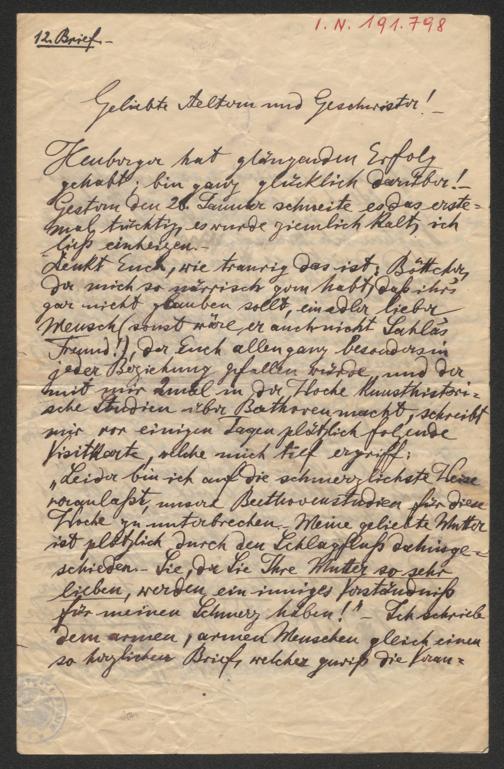 I. N. 191.798
12. Brief.-
Geliebte Aeltern und Geschwister! -
Heuberger hat glänzenden Erfolg
gehabt; bin ganz glücklich darüber! -
Gestern den 26. Jänner schneite es das erste=
mal tüchtig, es wurde ziemlich kalt, ich
ließ einheizen. -
Denkt Euch, wie traurig das ist: Böttcher,
der mich so närrisch gern habt, daß ihr's
gar nicht glauben sollt, ein edler lieber
Mensch (sonst wäre er auch nicht Sahla's
Freund!), der Euch allen ganz besonders in
jeder Beziehung gefallen würde, und der
mit mir 2mal in der Woche kunsthistori=
sche Studien über Beethoven macht, schreibt
mir vor einigen Tagen plötzlich folgende
Visitkarte, welche mich tief ergriff:
„Leider bin ich auf die schmerzlichste Weise
veranlaßt, unsere Beethovenstudien für diese
Woche zu unterbrechen. - Meine geliebte Mutter
ist plötzlich durch den Schlagfluß dahinge=
schieden. - Sie, der Sie Ihre Mutter so sehr
lieben, werden ein inniges Verständniß
für meinen Schmerz haben!" - Ich schrieb
dem armen, armen Menschen gleich einen
so herzlichen Brief, welcher gewiß die Veran=